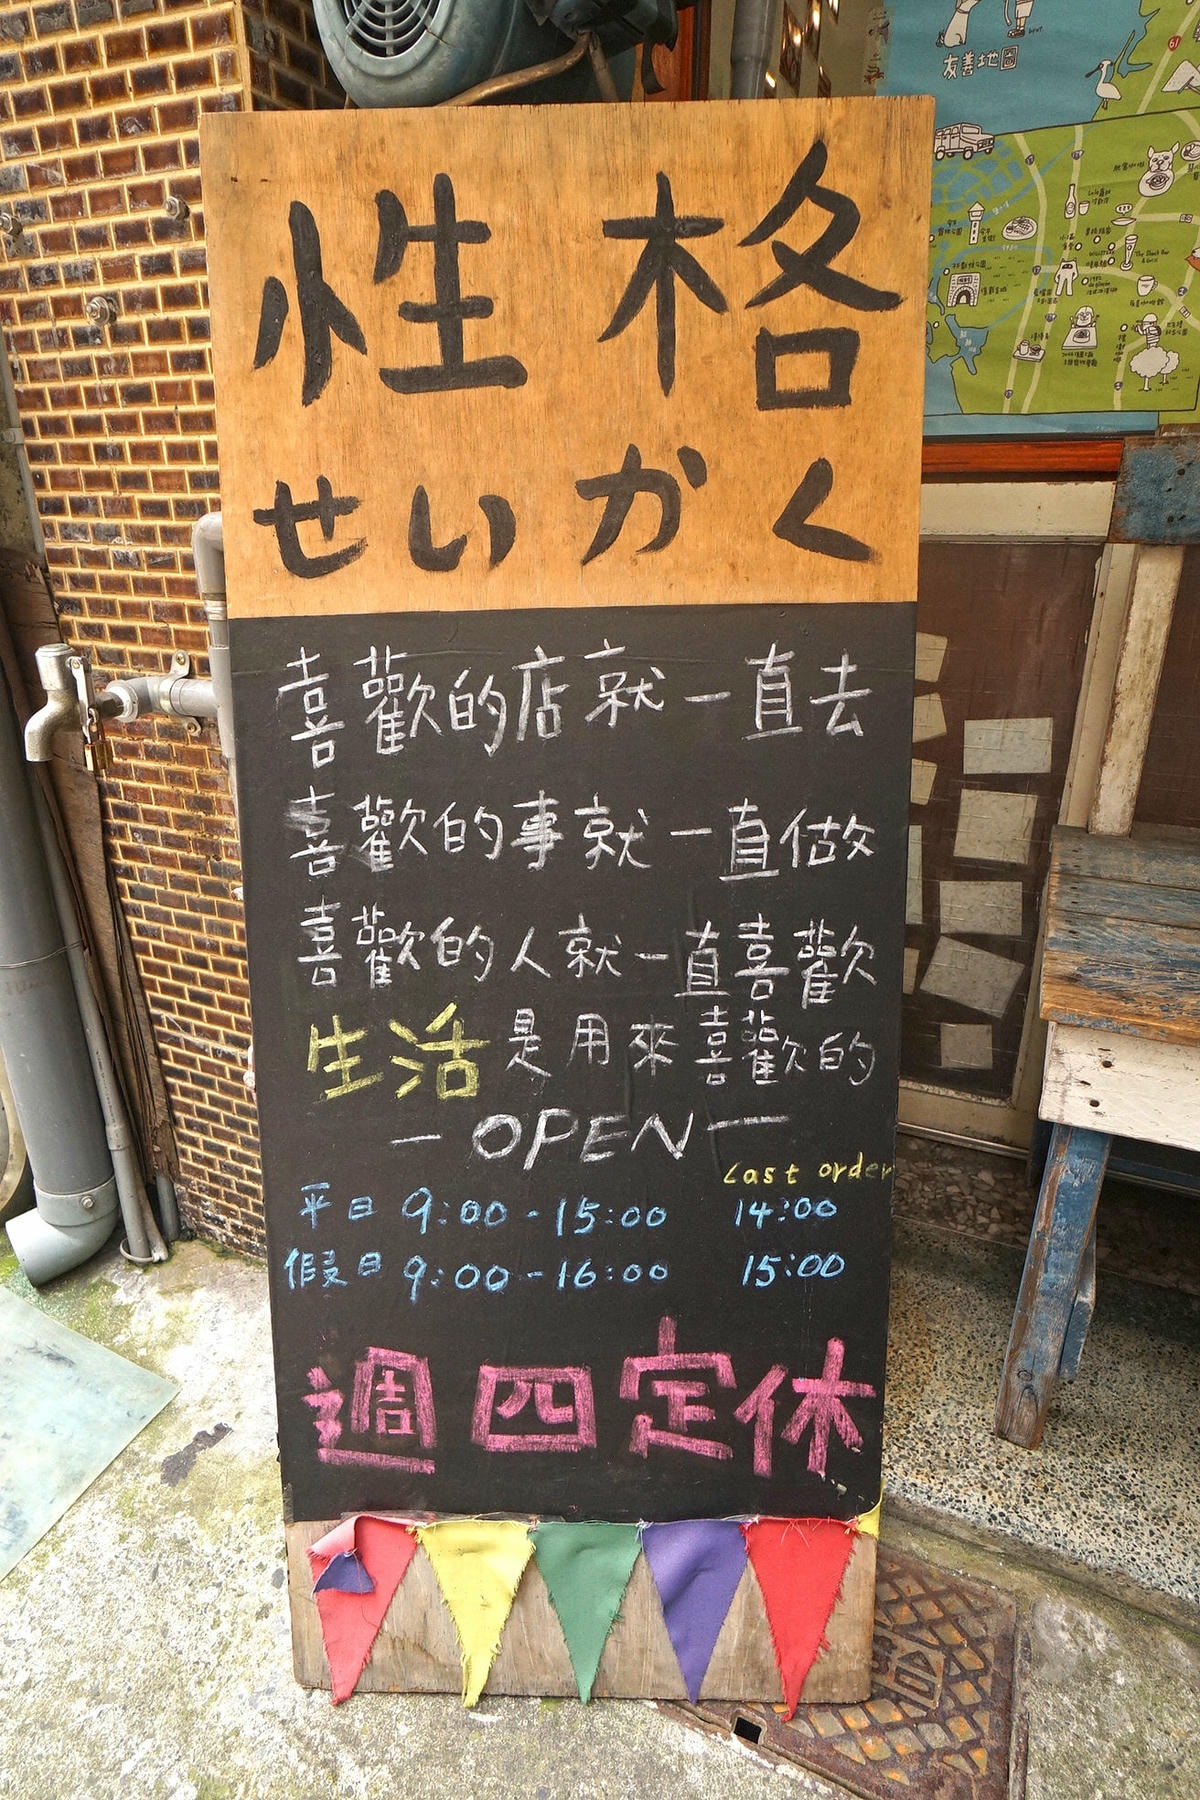 性格
せいかく
喜歡的店就一直去
喜歡的事就一直做
喜歡的人就一直喜歡
生活是用來喜歡的
— OPEN —
Last order
平日 9:00 - 15:00 14:00
假日 9:00 - 16:00 15:00
週四定休
友善地圖